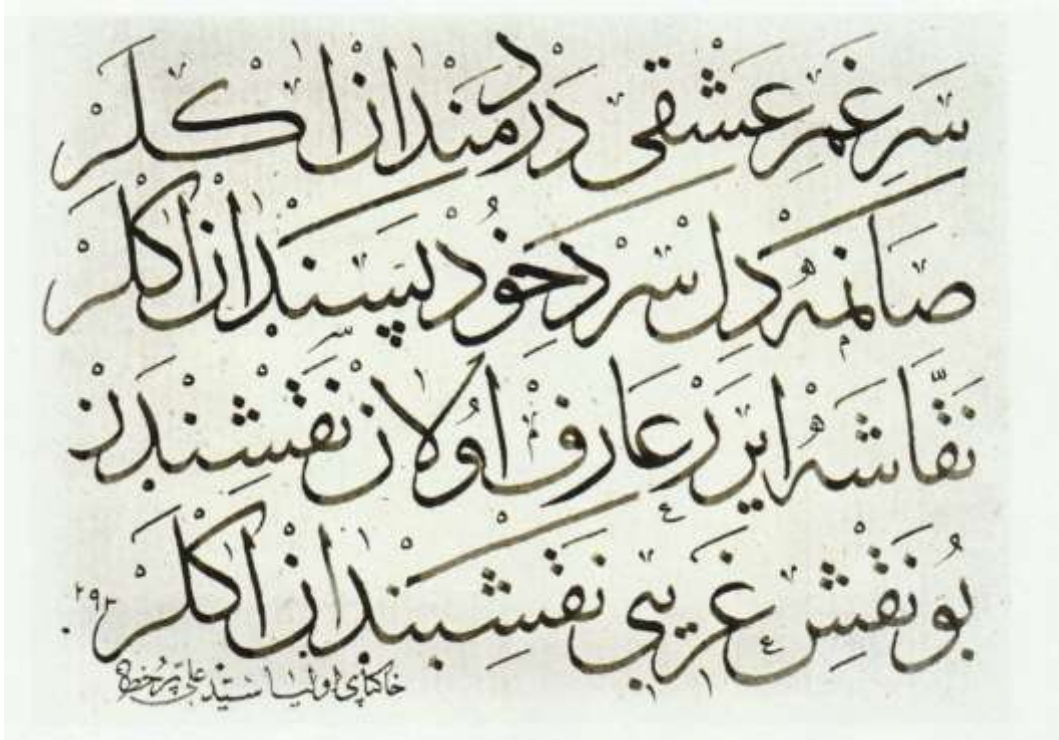 سر غم عشقی دردمندان اكلر
صانمه دل سرد خود پسندان اكلر
نقاشه ایرر عارف اولان نقشندن
بو نقش غریبی نقشبندان اكلر
خاكپای اولیا سید علی